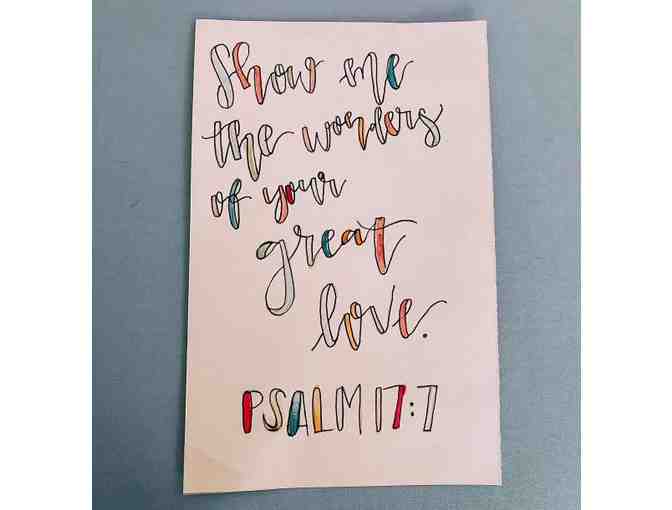 Show me
the wonders
of your
great
love.
PSALM 17:7